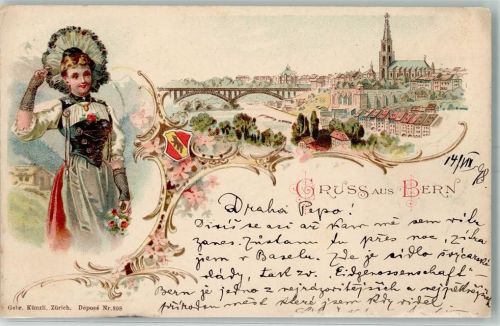 14/VIII 98
GRUSS AUS BERN
Drahá Pepo!
Divíš se asi až kam mě sem vítr
zanes. Zůstanu tu přes noc, zítra
jsem v Baselu. Zde je sídlo švýcarské
vlády, tak zv. "Eidgenossenschaft" –
Bern je jedno z nejrázovitějších a nejpěknějších
měst které jsem kdy viděl
Gebr. Künzli, Zürich. Déposé Nr. 808